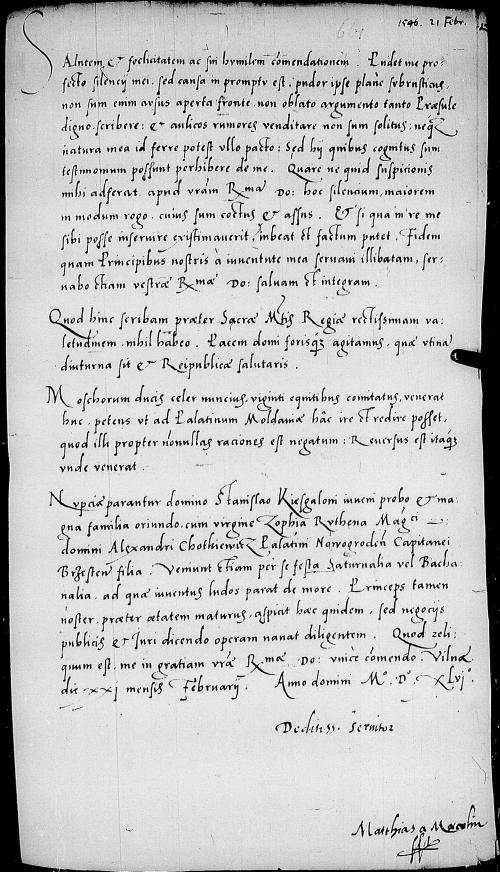 1546. 21 Febr.
Salutem & foelicitatem ac sui humilem comendationem. Pudet me pro-
fecto silencij mei, sed causa in promptu est, pudor ipse plane subrusticus,
non sum enim ausus aperta fronte, non oblato argumento tanto Præsule
digno scribere: & aulicos rumores venditare non sum solitus: neqz
natura mea id ferre potest ullo pacto: Sed hij quibus cognitus sum
testimonium possunt perhibere de me. Quare ne quid suspicionis
mihi adferat apud vram Rma Do: hoc silencium, maiorem
in modum rogo, cuius sum coctus & assus. Et si qua in re me
sibi posse inservire existimaverit, iubeat et factum putet. Fidem
quam Principibus nostris à iuventute mea servavi illibatam, ser-
vabo etiam vestræ Rmæ Do: salvam et integram.
Quod hinc scribam præter Sacræ Mtis Regiæ rectissimam va-
letudinem, nihil habeo. Pacem domi forisqz agitamus, quæ utina
diuturna sit & Reipublicæ salutaris.
Moschorum ducis celer nuncius, viginti equitibus comitatus, venerat
huc, petens ut ad Palatinum Moldaviæ hâc ire et redire posset,
quod illi propter nonullas raciones est negatum: Reversus est itaqz
unde venerat.
Nupciæ parantur domino Stanislao Kiesgaloni iuveni probo & ma-
gna familia oriundo, cum virgine Zophia Ruthena Magci
domini Alexandri Chotkiewicz Palatini Nowogroden Capitanei
Brzesten filia. Veniunt etiam per se festa Saturnalia vel Bacha-
nalia, ad quæ iuventus ludos parat de more. Princeps tamen
noster, præter ætatem maturus, aspicit hæc quidem, sed negocijs
publicis & Juri dicendo operam navat diligentem. Quod reli-
quum est, me in gratiam vræ Rmæ Do: unice comendo. Vilnæ
die xxj mensis Februarij. Anno domini Mo. Do. XLVJo.
Deditiss. servitor
Matthias a